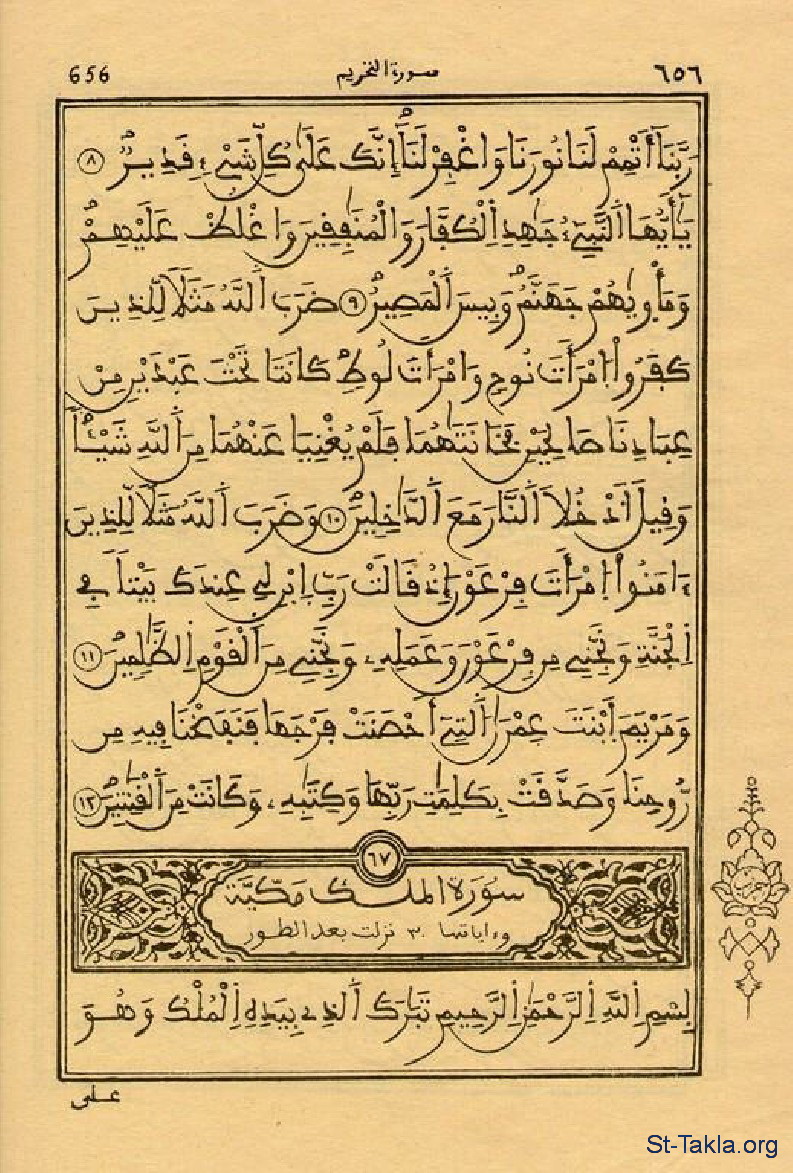 656 سورة التحريم ٦٥٦
رَبَّنَآ أَتْمِمْ لَنَا نُورَنَا وَاغْفِرْ لَنَآ إِنَّكَ عَلَىٰ كُلِّ شَےْءٖ قَدِيرٞ ٨
يَٰٓأَيُّهَا اَ۬لنَّبِےٓءُ جَٰهِدِ اِ۬لْكُفَّارَ وَالْمُنَٰفِقِينَ وَاغْلُظْ عَلَيْهِمْ
وَمَأْوٜيٰهُمْ جَهَنَّمُ وَبِيسَ اَ۬لْمَصِيرُ ٩ ضَرَبَ اَ۬للَّهُ مَثَلاٗ لِّلذِينَ
كَفَرُواْ اُ۪مْرَأَتَ نُوحٖ وَامْرَأَتَ لُوطٖ كَانَتَا تَحْتَ عَبْدَيْنِ مِنْ
عِبَادِنَا صَٰلِحَيْنِ فَخَانَتَٰهُمَا فَلَمْ يُغْنِيَا عَنْهُمَا مِنَ اَ۬للَّهِ شَيْـٔاٗ
وَقِيلَ اَ۟دْخُلَا اَ۬لنَّارَ مَعَ اَ۬لدَّٰخِلِينَ ١٠ وَضَرَبَ اَ۬للَّهُ مَثَلاٗ لِّلذِينَ
ءَامَنُواْ اُ۪مْرَأَتَ فِرْعَوْنَ إِذْ قَالَتْ رَبِّ اِ۪بْنِ لِے عِندَكَ بَيْتاٗ فِے
اِ۬لْجَنَّةِ وَنَجِّنِے مِن فِرْعَوْنَ وَعَمَلِهِۦ وَنَجِّنِے مِنَ اَ۬لْقَوْمِ اِ۬لظَّٰلِمِينَ ١١
وَمَرْيَمَ اَ۪بْنَتَ عِمْرَٰنَ اَ۬لتِےٓ أَحْصَنَتْ فَرْجَهَا فَنَفَخْنَا فِيهِ مِن
رُّوحِنَا وَصَدَّقَتْ بِكَلِمَٰتِ رَبِّهَا وَكِتَٰبِهِۦ وَكَانَتْ مِنَ اَ۬لْقَٰنِتِينَ ١٢
٦٧
سُورَةُ الملك مَكِّيَّة
وءاياتها ٣٠ نزلت بعد الطور
بِسْمِ اِ۬للَّهِ اِ۬لرَّحْمَٰنِ اِ۬لرَّحِيمِ تَبَٰرَكَ اَ۬لذِے بِيَدِهِ اِ۬لْمُلْكُ وَهُوَ
على
حزب
St-Takla.org